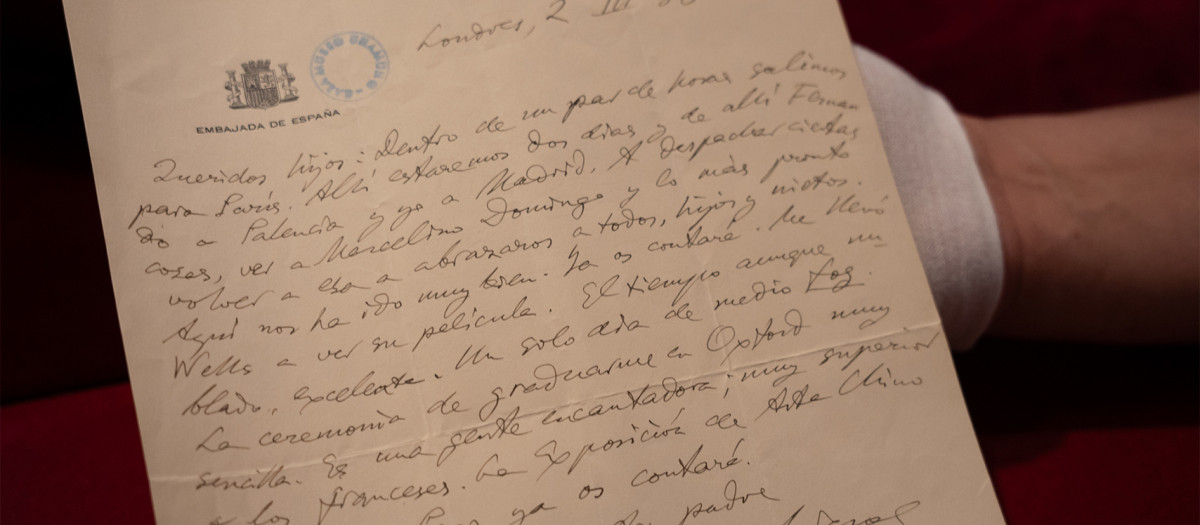 Londres, 2 III
CASA MUSEO UNAMUNO
EMBAJADA DE ESPAÑA
Queridos hijos: Dentro de un par de horas salimos
para París. Allí estaremos dos dias y de allí Fernan
do a Palencia y yo a Madrid. A despachar ciertas
cosas, ver a Marcelino Domingo y lo más pronto
volver a esa a abrazaros a todos, hijos y nietos.
Aquí nos ha ido muy bien. Ya os contaré. Me llevó
Wells a ver su película. El tiempo aunque nu
blado, excelente. Un solo dia de medio fog.
La ceremonia de graduarme en Oxford muy
sencilla. Es una gente encantadora; muy superior
a los franceses. La Exposición de Arte Chino
ya os contaré.
padre